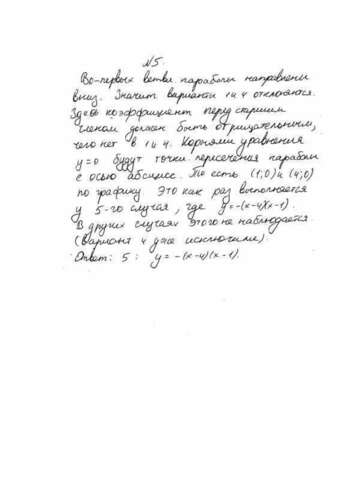 №5.
Во-первых ветви параболы направлены
вниз. Значит варианты 1 и 4 отклоняются.
Здесь коэффициент перед старшим
членом должен быть отрицательным,
чего нет в 1 и 4. Корнями уравнения
y=0 будут точки пересечения параболы
с осью абсцисс. То есть (1;0) и (4;0)
по графику. Это как раз выполняется
у 5-го случая, где y=-(x-4)(x-1).
В других случаях этого не наблюдается
(Вариант 4 уже исключили).
Ответ: 5: y=-(x-4)(x-1).